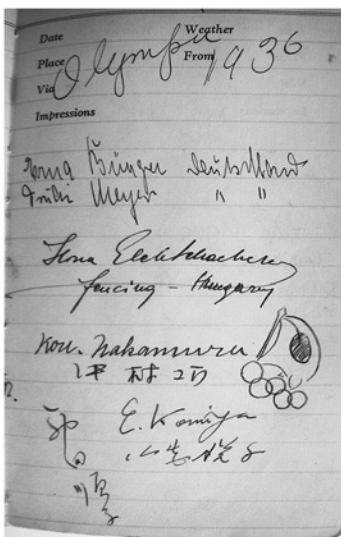 Date Weather
Place From
Via
Olympia 1936
Impressions
Erna Bürger Deutschland
Trudi Meyer " "
Ilona
fencing - Hungary
Kou. Nakamura
村
E. Komiya
小宮悦子